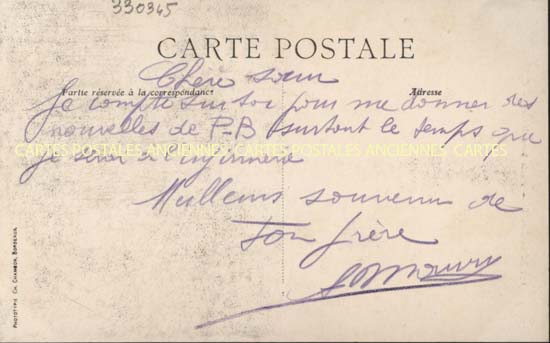 330345
CARTE POSTALE
Chère sœur
Partie réservée à la correspondance
Adresse
Je compte sur toi pour me donner des
nouvelles de P-B surtout le temps que
CARTES POSTALES ANCIENNES CARTES POSTALES ANCIENNES CARTES
je serai à l'infirmerie
Meilleurs souvenir de
Ton frère
PHOTOTYPIE CH. CHAMBON, BORDEAUX.